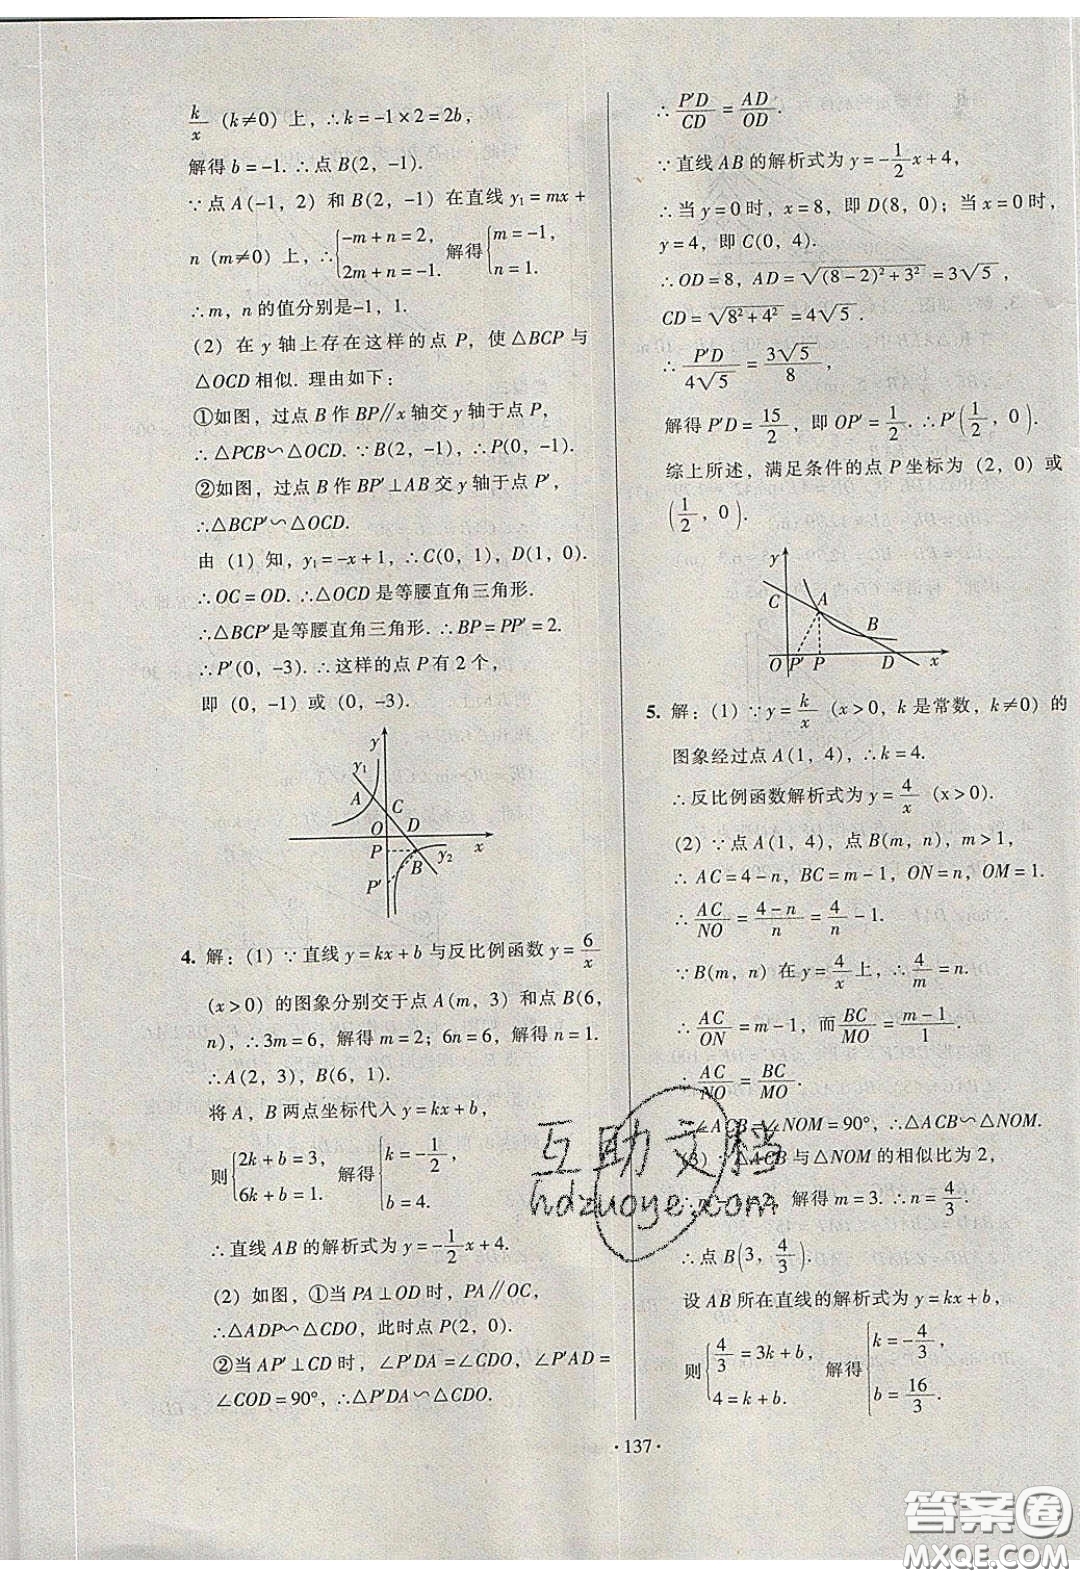 k/x (k≠0) 上，∴k=-1×2=2b，
解得 b=-1. ∴点 B(2，-1).
∵点 A(-1，2) 和 B(2，-1) 在直线 y₁=mx+
n (m≠0) 上，∴{-m+n=2，2m+n=-1. 解得{m=-1，n=1.
∴m，n 的值分别是-1，1.
(2) 在 y 轴上存在这样的点 P，使△BCP 与
△OCD 相似. 理由如下：
①如图，过点 B 作 BP∥x 轴交 y 轴于点 P，
∴△PCB∽△OCD. ∵B(2，-1)，∴P(0，-1).
②如图，过点 B 作 BP′⊥AB 交 y 轴于点 P′，
∴△BCP′∽△OCD.
由 (1) 知，y₁=-x+1，∴C(0，1)，D(1，0).
∴OC=OD. ∴△OCD 是等腰直角三角形.
∴△BCP′是等腰直角三角形. ∴BP=PP′=2.
∴P′(0，-3). ∴这样的点 P 有 2 个，
即 (0，-1) 或 (0，-3).
y
y₁
A
C
O
D
x
P
B
y₂
P′
4. 解：(1) ∵直线 y=kx+b 与反比例函数 y=6/x
(x>0) 的图象分别交于点 A(m，3) 和点 B(6，
n)，∴3m=6，解得 m=2；6n=6，解得 n=1.
∴A(2，3)，B(6，1).
将 A，B 两点坐标代入 y=kx+b，
则{2k+b=3，6k+b=1. 解得{k=-1/2，b=4.
∴直线 AB 的解析式为 y=-1/2x+4.
(2) 如图，①当 PA⊥OD 时，PA∥OC，
∴△ADP∽△CDO，此时点 P(2，0).
②当 AP′⊥CD 时，∠P′DA=∠CDO，∠P′AD=
∠COD=90°，∴△P′DA∽△CDO.
∴P′D/CD=AD/OD.
∵直线 AB 的解析式为 y=-1/2x+4，
∴当 y=0 时，x=8，即 D(8，0)；当 x=0 时，
y=4，即 C(0，4).
∴OD=8，AD=√((8-2)²+3²)=3√5，
CD=√(8²+4²)=4√5.
∴P′D/4√5=3√5/8，
解得 P′D=15/2，即 OP′=1/2. ∴P′(1/2，0).
综上所述，满足条件的点 P 坐标为 (2，0) 或
(1/2，0).
y
C
A
B
O
P′
P
D
x
5. 解：(1) ∵y=k/x (x>0，k 是常数，k≠0) 的
图象经过点 A(1，4)，∴k=4.
∴反比例函数解析式为 y=4/x (x>0).
(2) ∵点 A(1，4)，点 B(m，n)，m>1，
∴AC=4-n，BC=m-1，ON=n，OM=1.
∴AC/NO=(4-n)/n=4/n-1.
∵B(m，n) 在 y=4/x 上，∴4/m=n.
∴AC/ON=m-1，而BC/MO=(m-1)/1.
∴AC/NO=BC/MO.
∠ACB=∠NOM=90°，∴△ACB∽△NOM.
∵△ACB 与△NOM 的相似比为 2，
∴m-1=2，解得 m=3. ∴n=4/3.
∴点 B(3，4/3).
设 AB 所在直线的解析式为 y=kx+b，
则{4/3=3k+b，4=k+b. 解得{k=-4/3，b=16/3.
·137·
互助文档
hdzuoye.com
答案圈
MXQE.COM